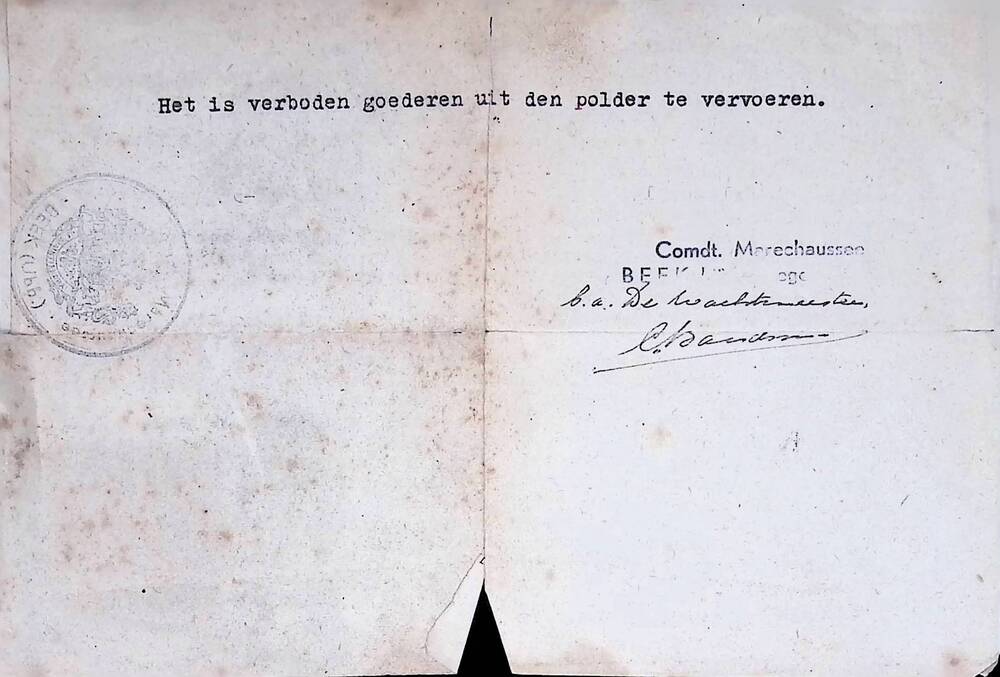 Het is verboden goederen uit den polder te vervoeren.
BEEK (Ubb)
Comdt. Marechaussee
BEEK
b.a. De Wachtmeester,